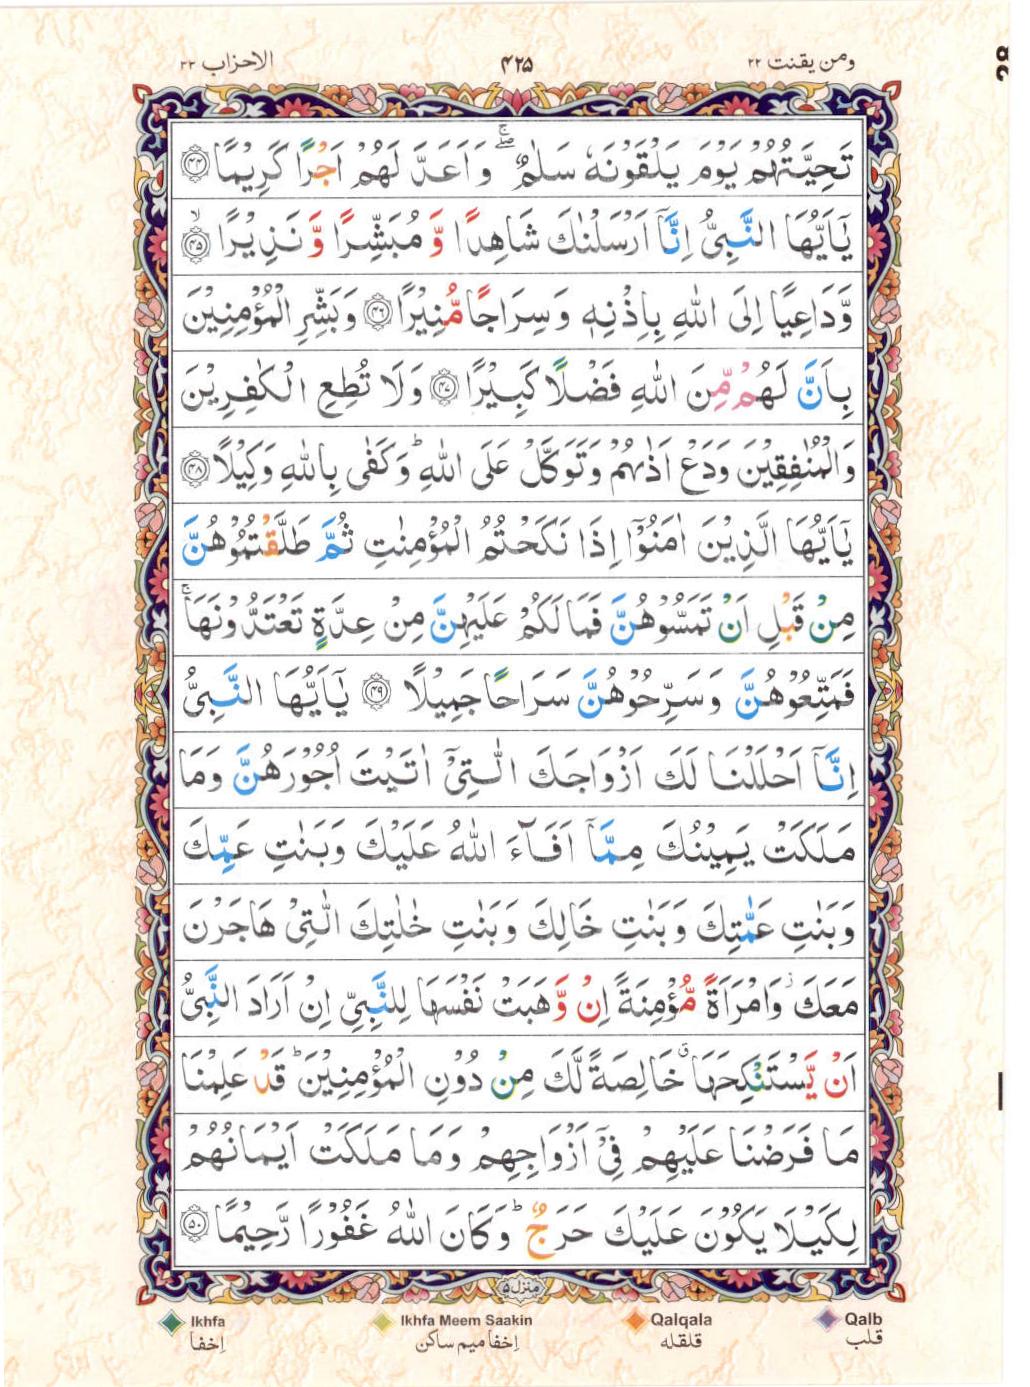 ومن یقنت ۲۲
۴۲۵
الاحزاب ۳۳
تَحِيَّتُهُمْ يَوْمَ يَلْقَوْنَهٗ سَلٰمٌ ۖۚ وَاَعَدَّ لَهُمْ اَجْرًا كَرِيْمًا ﴿۴۴﴾
يٰۤاَيُّهَا النَّبِىُّ اِنَّاۤ اَرْسَلْنٰكَ شَاهِدًا وَّ مُبَشِّرًا وَّ نَذِيْرًا ۙ﴿۴۵﴾
وَّدَاعِيًا اِلَى اللّٰهِ بِاِذْنِهٖ وَسِرَاجًا مُّنِيْرًا ﴿۴۶﴾ وَبَشِّرِ الْمُؤْمِنِيْنَ
بِاَنَّ لَهُمْ مِّنَ اللّٰهِ فَضْلًا كَبِيْرًا ﴿۴۷﴾ وَلَا تُطِعِ الْكٰفِرِيْنَ
وَالْمُنٰفِقِيْنَ وَدَعْ اَذٰىهُمْ وَتَوَكَّلْ عَلَى اللّٰهِ ؕ وَكَفٰى بِاللّٰهِ وَكِيْلًا ﴿۴۸﴾
يٰۤاَيُّهَا الَّذِيْنَ اٰمَنُوْۤا اِذَا نَكَحْتُمُ الْمُؤْمِنٰتِ ثُمَّ طَلَّقْتُمُوْهُنَّ
مِنْ قَبْلِ اَنْ تَمَسُّوْهُنَّ فَمَا لَكُمْ عَلَيْهِنَّ مِنْ عِدَّةٍ تَعْتَدُّوْنَهَا ۚ
فَمَتِّعُوْهُنَّ وَسَرِّحُوْهُنَّ سَرَاحًا جَمِيْلًا ﴿۴۹﴾ يٰۤاَيُّهَا النَّبِىُّ
اِنَّاۤ اَحْلَلْنَا لَكَ اَزْوَاجَكَ الّٰتِىْۤ اٰتَيْتَ اُجُوْرَهُنَّ وَمَا
مَلَكَتْ يَمِيْنُكَ مِمَّاۤ اَفَآءَ اللّٰهُ عَلَيْكَ وَبَنٰتِ عَمِّكَ
وَبَنٰتِ عَمّٰتِكَ وَبَنٰتِ خَالِكَ وَبَنٰتِ خٰلٰتِكَ الّٰتِىْ هَاجَرْنَ
مَعَكَ ؗ وَامْرَاَةً مُّؤْمِنَةً اِنْ وَّهَبَتْ نَفْسَهَا لِلنَّبِىِّ اِنْ اَرَادَ النَّبِىُّ
اَنْ يَّسْتَنْكِحَهَا ۗ خَالِصَةً لَّكَ مِنْ دُوْنِ الْمُؤْمِنِيْنَ ؕ قَدْ عَلِمْنَا
مَا فَرَضْنَا عَلَيْهِمْ فِىْۤ اَزْوَاجِهِمْ وَمَا مَلَكَتْ اَيْمَانُهُمْ
لِكَيْلَا يَكُوْنَ عَلَيْكَ حَرَجٌ ؕ وَكَانَ اللّٰهُ غَفُوْرًا رَّحِيْمًا ﴿۵۰﴾
منزل ۵
Ikhfa
اِخفا
Ikhfa Meem Saakin
اِخفا میم ساکن
Qalqala
قلقلہ
Qalb
قلب